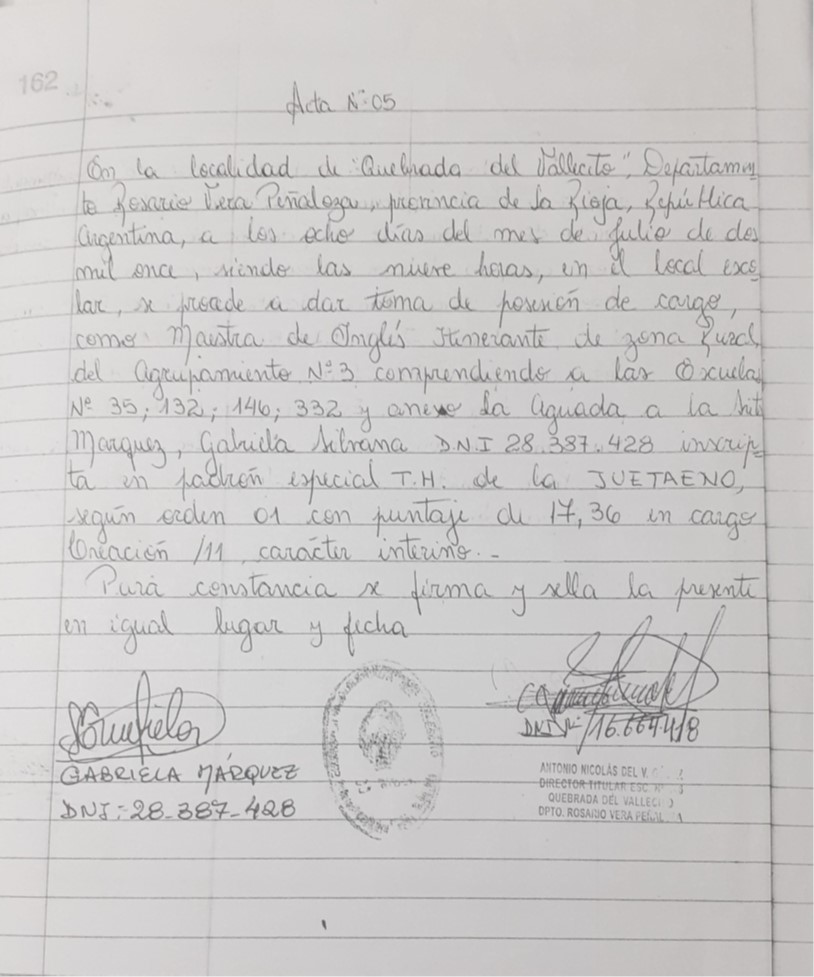 162
Acta N°: 05
En la localidad de "Quebrada del Vallecito", Departamen
to Rosario Vera Peñaloza, provincia de La Rioja, República
Argentina, a los ocho días del mes de julio de dos
mil once, siendo las nueve horas, en el local esco
lar, se procede a dar toma de posesión de cargo,
como Maestra de Inglés Itinerante de zona Rural
del Agrupamiento N°3 comprendiendo a las Escuelas
N° 35; 132; 146; 332 y anexo La Aguada a la
Marquez, Gabriela Silvana D.N.I 28.387.428 inscrip-
ta en padrón especial T.H. de la JUETAENO,
según orden 01 con puntaje de 17,36 en cargo
Creación /11, carácter interino.-
Para constancia se firma y sella la presente
en igual lugar y fecha
GABRIELA MÁRQUEZ
DNI:-28-387-428
DNI N°: 16.664.418
ANTONIO NICOLÁS DEL V.
DIRECTOR TITULAR ESC. N°
QUEBRADA DEL VALLECI
DPTO. ROSARIO VERA PEÑAL